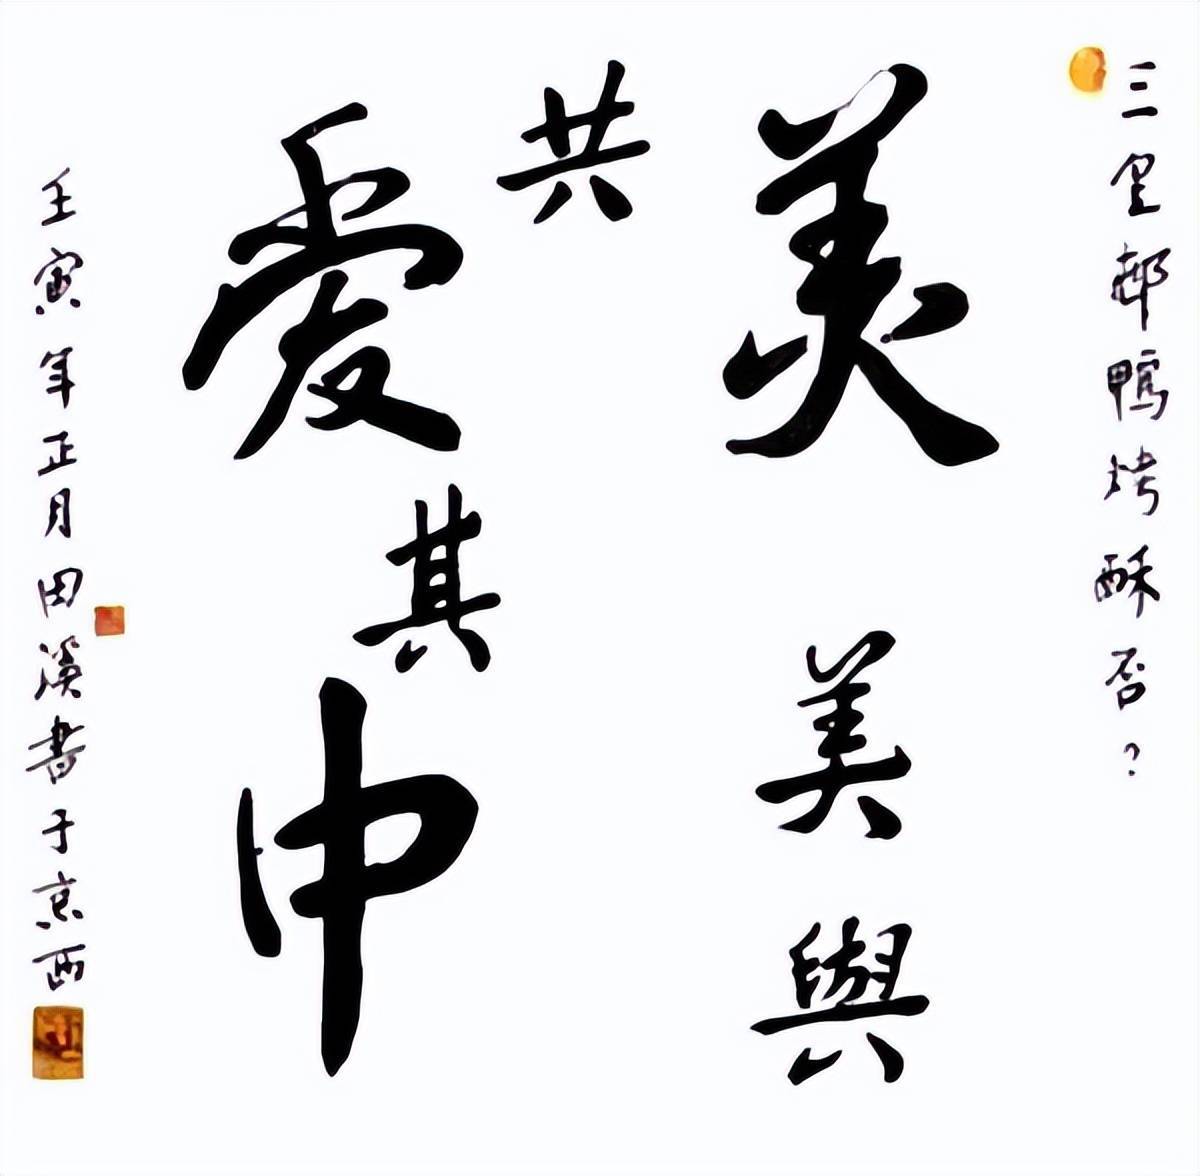 三里邨鴨烤酥否？
美美與
共
爱其中
壬寅年正月田溪書于京西